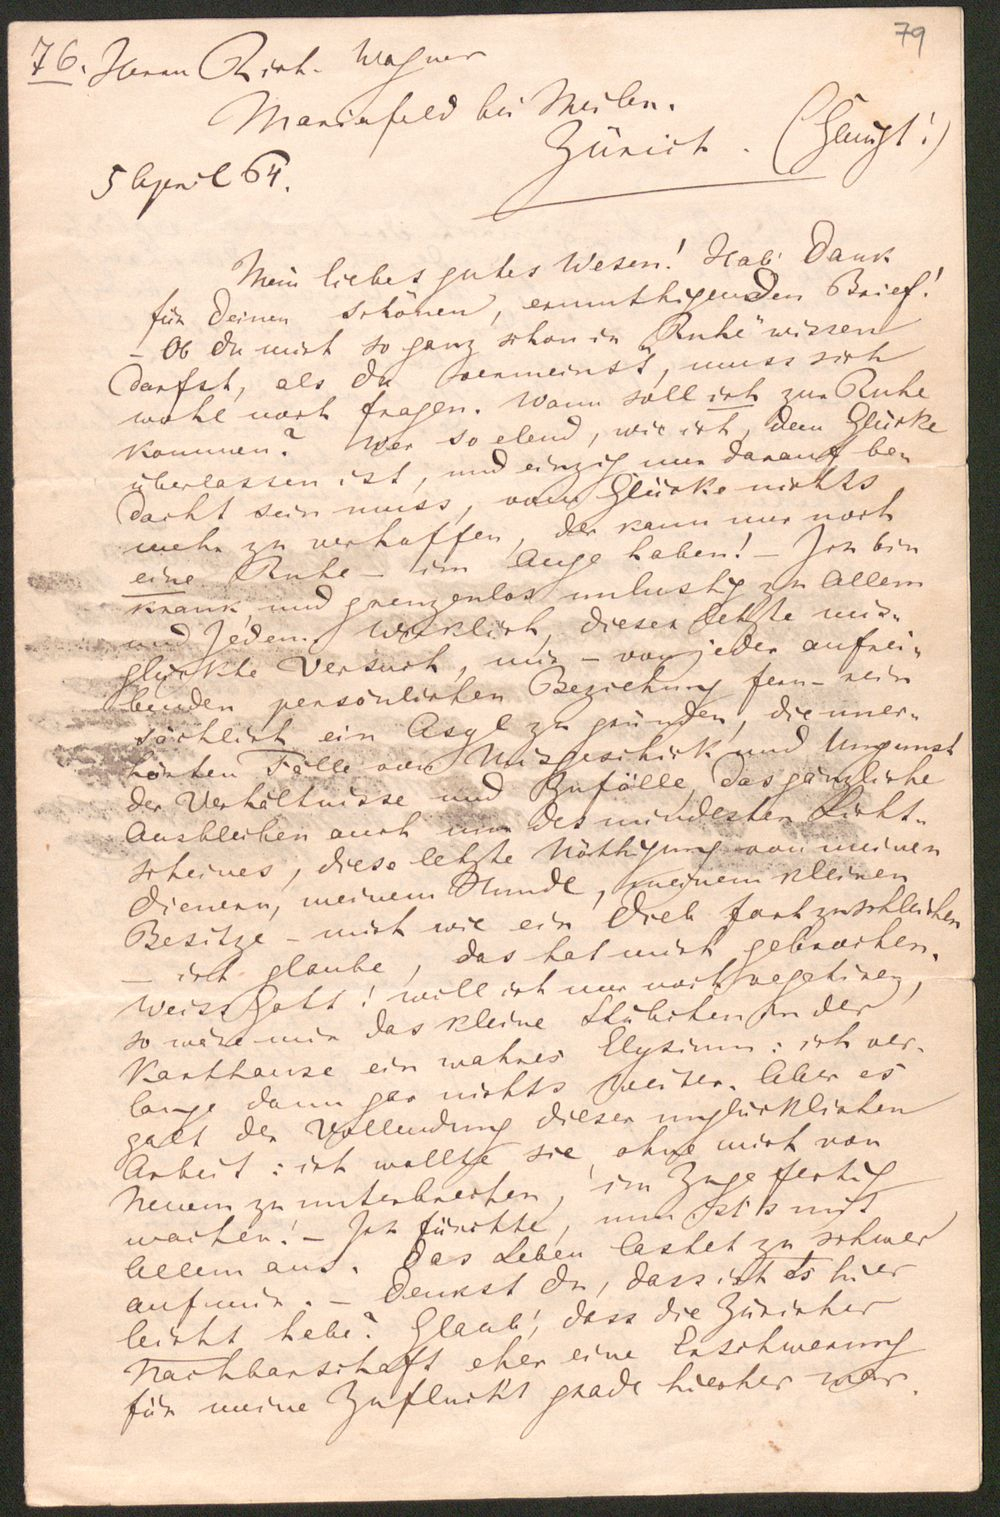 79
76. Herrn Rich. Wagner
Mariafeld bei Meilen.
Zürich.
5 April 64.
Mein liebes gutes Wesen! Hab' Dank
für Deinen schönen, ermuthigenden Brief!
– Ob du mich so ganz schon in "Ruhe" wissen
darfst, als du vermeinst, muss sich
wohl noch fragen. Wann soll ich zur Ruhe
kommen? Wer so elend, wie ich, dem Glücke
überlassen ist, und einzig nur darauf be„
dacht sein muss, vom Glücke nichts
mehr zu verhoffen, der kann nur noch
eine Ruhe – im Auge haben! – Ich bin
krank und grenzenlos unlustig zu Allem
und Jedem. Wirklich, dieser letzte mis„
glückte Versuch, mir – von jeder aufrei„
benden persönlichen Beziehung fern – rein
sächlich ein Asyl zu gründen, die uner„
hörten Fälle von Misgeschick und Ungunst
der Verhältnisse und Zufälle, das gänzliche
Ausbleiben auch nur des mindesten Licht„
scheines, diese letzte Nöthigung von meinen
Dienern, meinem Hunde, meinem kleinen
Besitze – mich wie ein Dieb fortzuschleichen
– ich glaube, das hat mich gebrochen.
Weiss Gott! will ich nur noch vegetiren,
so wäre mir das kleine Stübchen in der
Karthause ein wahres Elysium: ich ver„
lange dann gar nichts weiter. Aber es
galt der Vollendung dieser unglücklichen
Arbeit: ich wollte sie, ohne mich von
Neuem zu unterbrechen, im Zuge fertig
machen! – Ich fürchte, nun ist's mit
Allem aus. Das Leben lastet zu schwer
auf mir. – Denkst du, dass ich es hier
leicht habe? Glaub', dass die Züricher
Nachbarschaft eher eine Erschwerung
für meine Zuflucht grade hierher war.